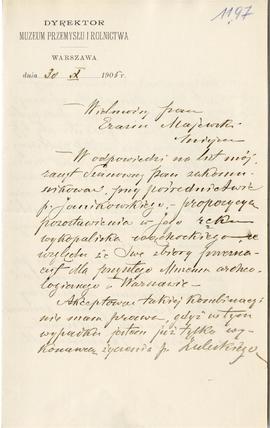 1197
DYREKTOR
MUZEUM PRZEMYSŁU I ROLNICTWA
WARSZAWA
dnia 20 X 1905 r.
Wielmożny pan
Erazm Majewski
w miejscu
W odpowiedzi na list mój,
raczył Szanowny Pan zakomu-
nikować, przy pośrednictwie
p. Janikowskiego, propozycję
pozostawienia w jego ręku
wykopaliska
względu że Swe zbiory przezna-
czył dla przyszłego Muzeum archeo-
logicznego w Warszawie.
Akceptować takiej kombinacji
nie mam prawa, gdyż w tym
wypadku jestem już tylko wy-
konawcą życzenia p.